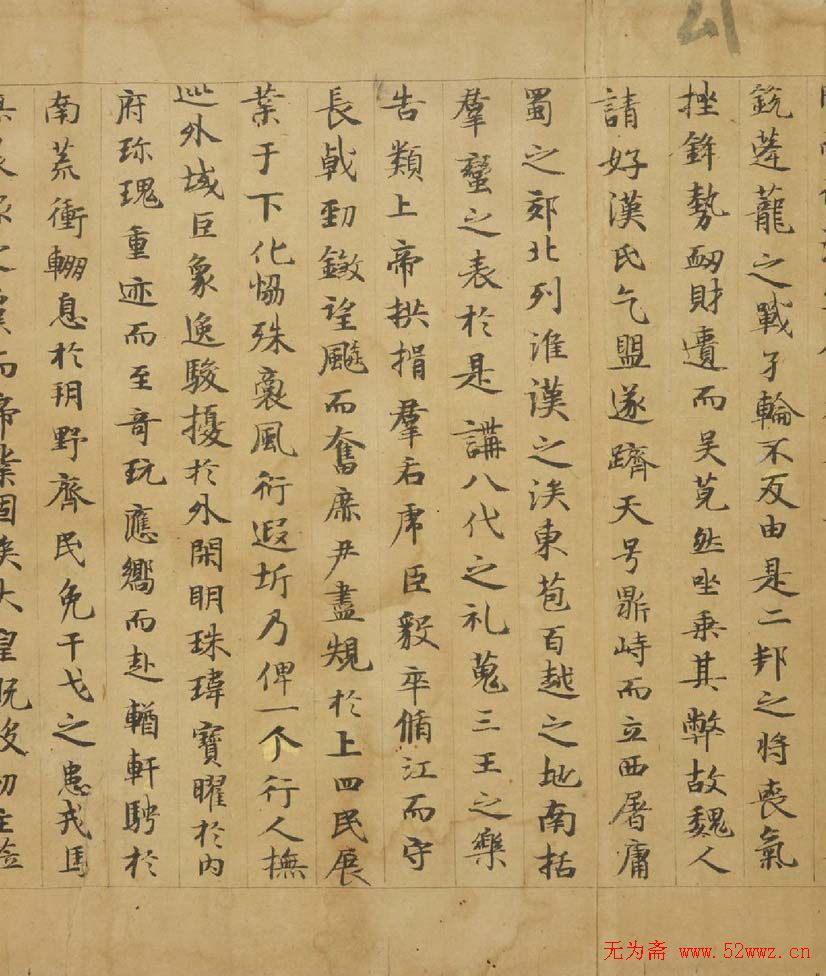 銳蓬蘢之戰孑輪不反由是二邦之将喪氣
挫鋒勢衂財遺而吴莧然坐乗其弊故魏人
請好漢氏乞盟遂躋天号鼎峙而立西屠庸
蜀之郊北列淮漢之涘東苞百越之地南括
羣蠻之表於是講八代之礼蒐三王之樂
告類上帝拱揖羣后虎臣毅卒循江而守
長戟勁鎩望飈而奮庶尹盡規於上四民展
業于下化恊殊裔風衍遐圻乃俾一个行人撫
巡外域巨象逸駿擾於外閑明珠瑋寶曜於内
府珎瑰重迹而至竒玩應嚮而赴輶軒騁於
南荒衝輣息於朔野齊民免干戈之患戎馬
之虞而帝業固矣大皇既没幼主莅
无为斋 www.52wwz.cn